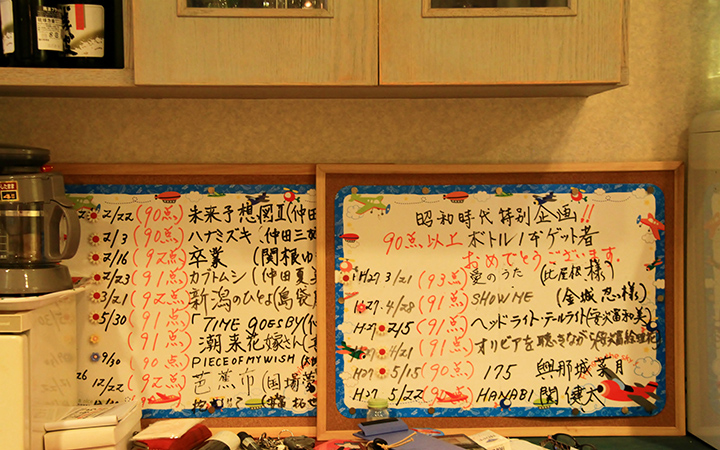 2/22 (90点) 未来予想図Ⅱ(仲田
2/3 (90点) ハナミズキ (仲田三
2/16 (92点) 卒業 (関根ゆ
2/23 (91点) カブトムシ (仲田夏美
3/21 (92点) 新潟のひとよ(島袋
5/30 (91点) 「TIME GOES BY(
(91点) 潮来花嫁さん
9/30 (90点) PIECE OF MY WISH
12/22 (92点) 芭蕉布 (国場
(91点)
昭和時代特別企画!!
90点以上 ボトル1本ゲット者
おめでとうございます。
H27 3/21 (93点) 愛のうた (比屋根様)
H27.4/28 (91点) SHOW ME (金城 忍様)
H27 2/15 (91点) ヘッドライト・テールライト(安次富和美)
H27 4/21 (91点) オリビアを聴きながら
H27 5/15 (90点) 175 與那城 葉月
H27 5/22 (90点) HANABI 関 健太